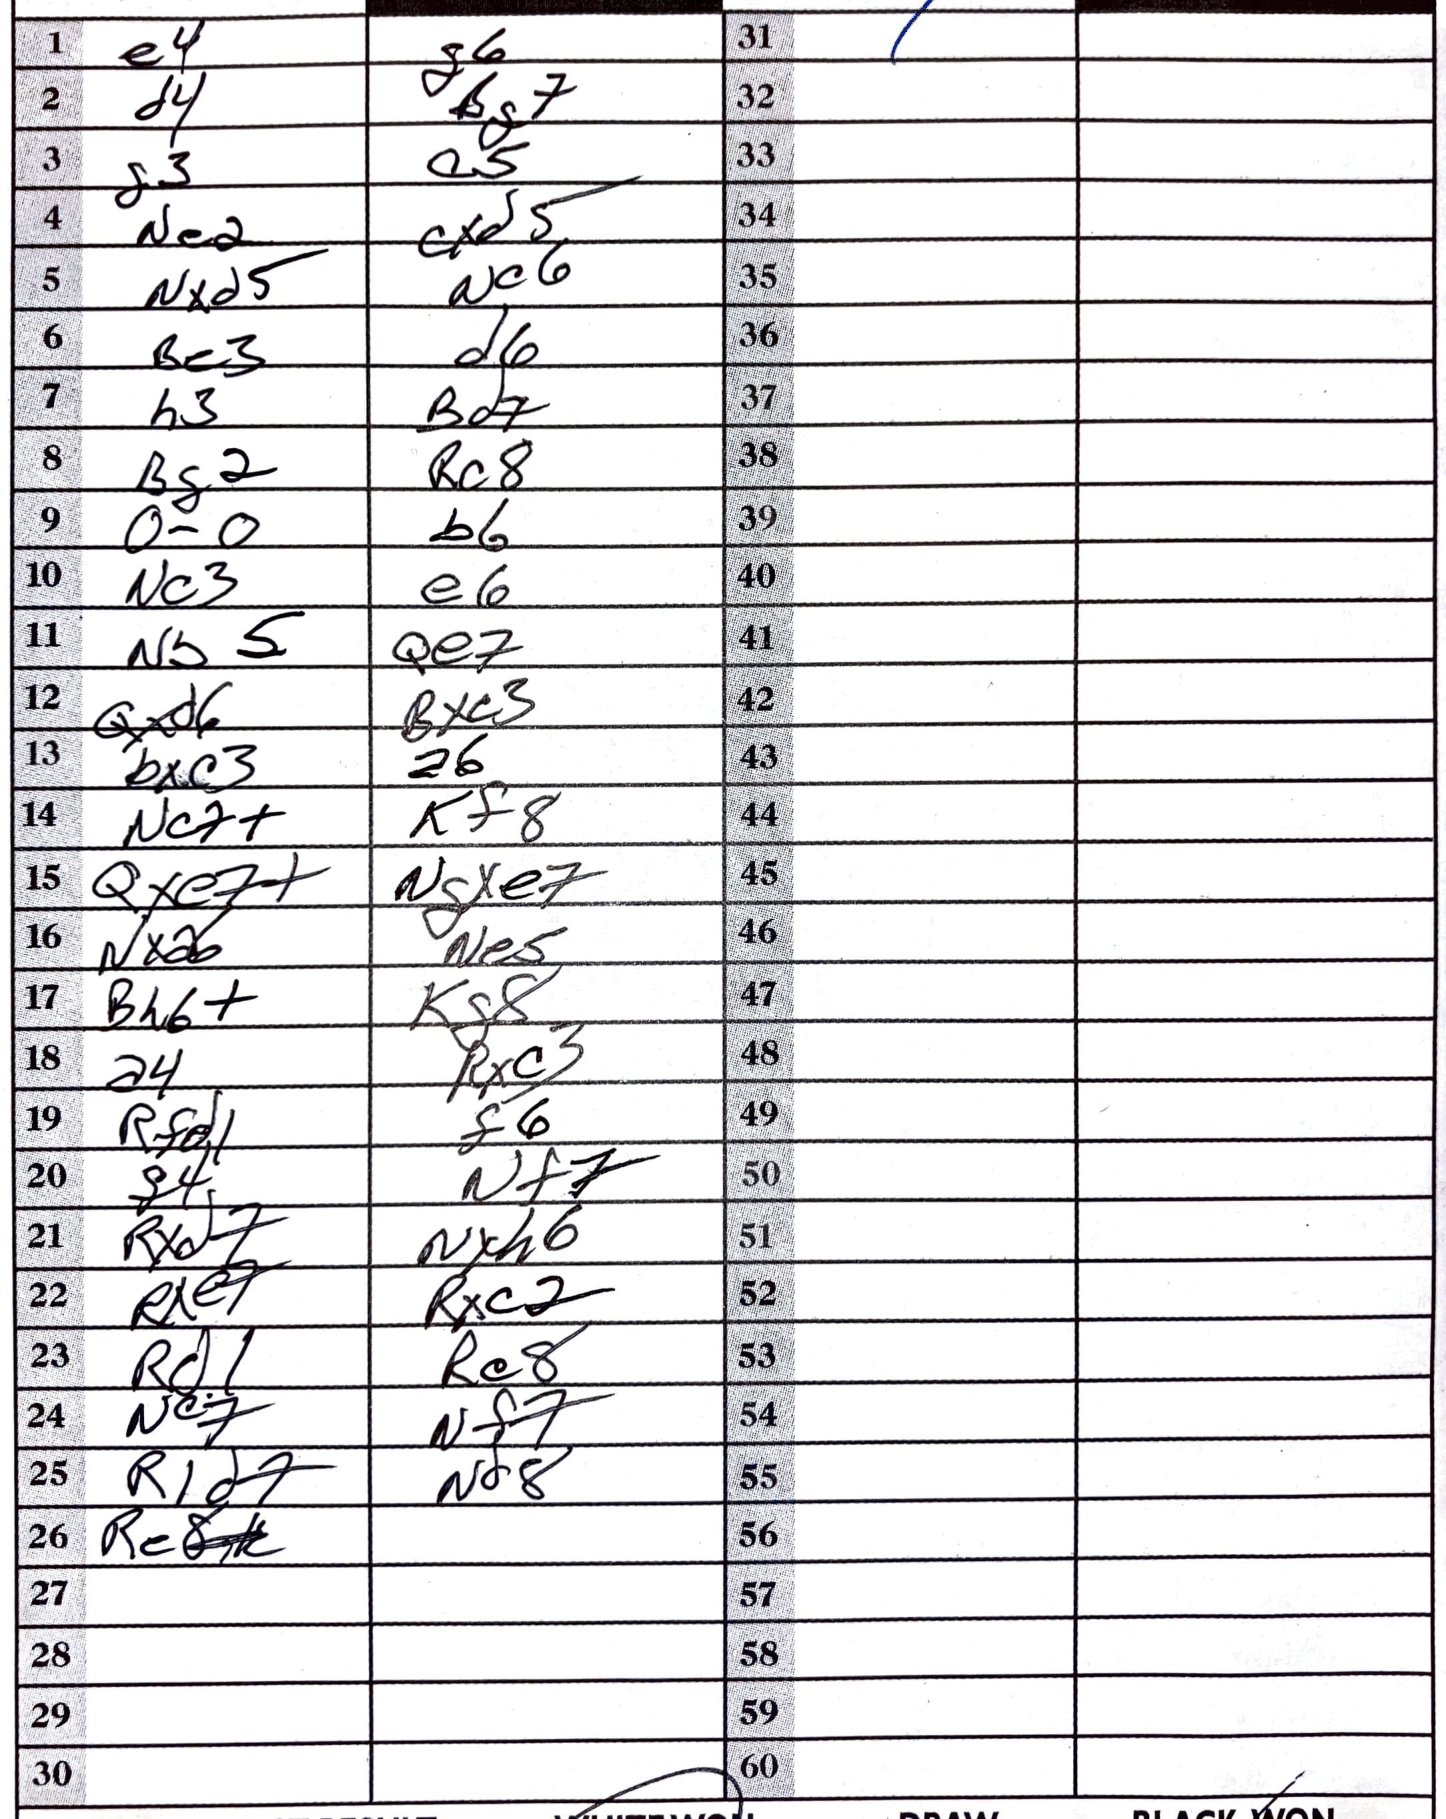 1 e4 g6 31
2 d4 Bg7 32
3 g3 c5 33
4 Ne2 cxd5 34
5 Nxd5 Nc6 35
6 Be3 d6 36
7 h3 Bd7 37
8 Bg2 Rc8 38
9 0-0 b6 39
10 Nc3 e6 40
11 Nb5 Qe7 41
12 Qxd6 Bxc3 42
13 bxc3 a6 43
14 Nc7+ Kf8 44
15 Qxe7+ Ngxe7 45
16 Nxa6 Ne5 46
17 Bh6+ Kg8 47
18 a4 Rxc3 48
19 Rfd1 f6 49
20 g4 Nf7 50
21 Rxd7 Nxh6 51
22 Rxe7 Rxc2 52
23 Rd1 Rc8 53
24 Nc7 Nf7 54
25 R1d7 Nd8 55
26 Re8 56
27 57
28 58
29 59
30 60
WHITE WON DRAW BLACK WON